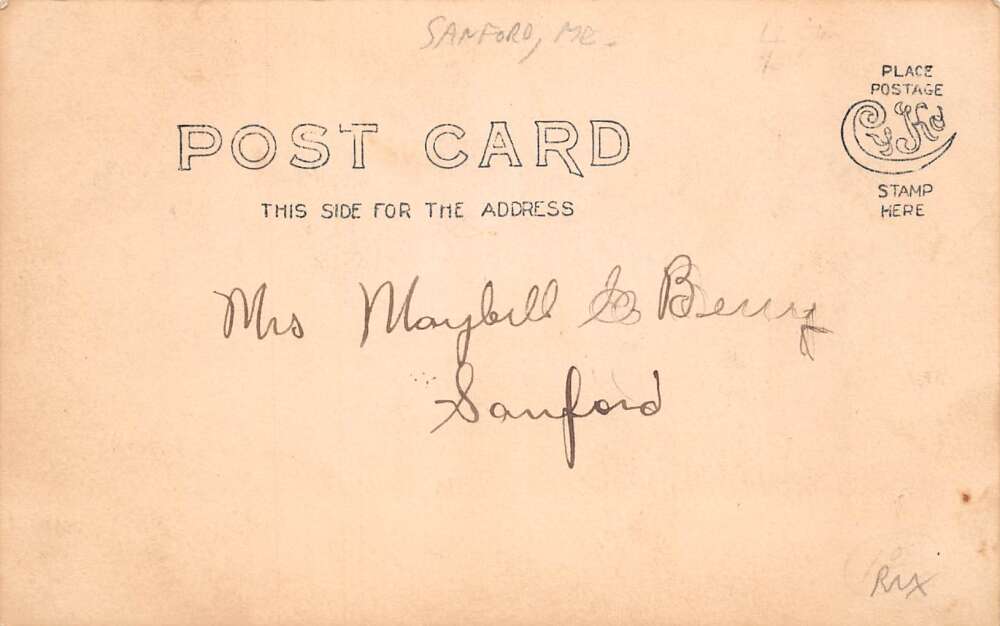 SANFORD, ME.
PLACE
POSTAGE
CyKo
STAMP
HERE
POST CARD
THIS SIDE FOR THE ADDRESS
Mrs Maybell Berry
Sanford
RMX